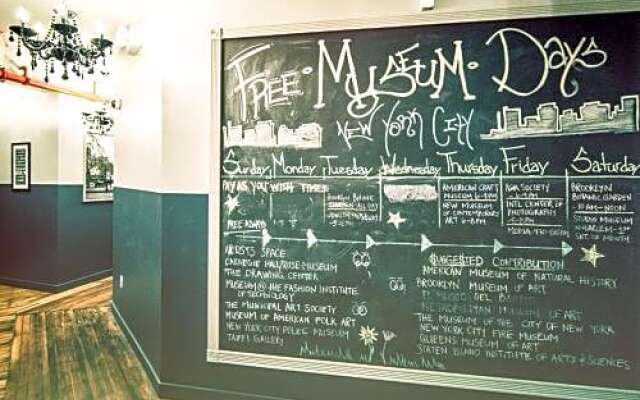 FREE · MUSEUM · DAYS
NEW YORK CITY
Sunday Monday Tuesday Wednesday Thursday Friday Saturday
PAY AS YOU WISH TIMES
AMERICAN CRAFT
MUSEUM 6-8PM
NEW MUSEUM
OF CONTEMPORARY
ART 6-8PM
ASIA SOCIETY
6-9PM
INTL CENTER OF
PHOTOGRAPHY
BROOKLYN
BOTANIC GARDEN
10AM-NOON
STUDIO MUSEUM
IN HARLEM-1ST
SAT OF MONTH
ARTISTS SPACE
CARNEGIE HALL/ROSE MUSEUM
THE DRAWING CENTER
MUSEUM @ THE FASHION INSTITUTE
OF TECHNOLOGY
THE MUNICIPAL ART SOCIETY
MUSEUM OF AMERICAN FOLK ART
NEW YORK CITY POLICE MUSEUM
GALLERY
SUGGESTED CONTRIBUTION
AMERICAN MUSEUM OF NATURAL HISTORY
BROOKLYN MUSEUM OF ART
EL MUSEO DEL BARRIO
METROPOLITAN MUSEUM OF ART
THE MUSEUM OF THE CITY OF NEW YORK
NEW YORK CITY FIRE MUSEUM
QUEENS MUSEUM OF ART
STATEN ISLAND INSTITUTE OF ARTS & SCIENCES